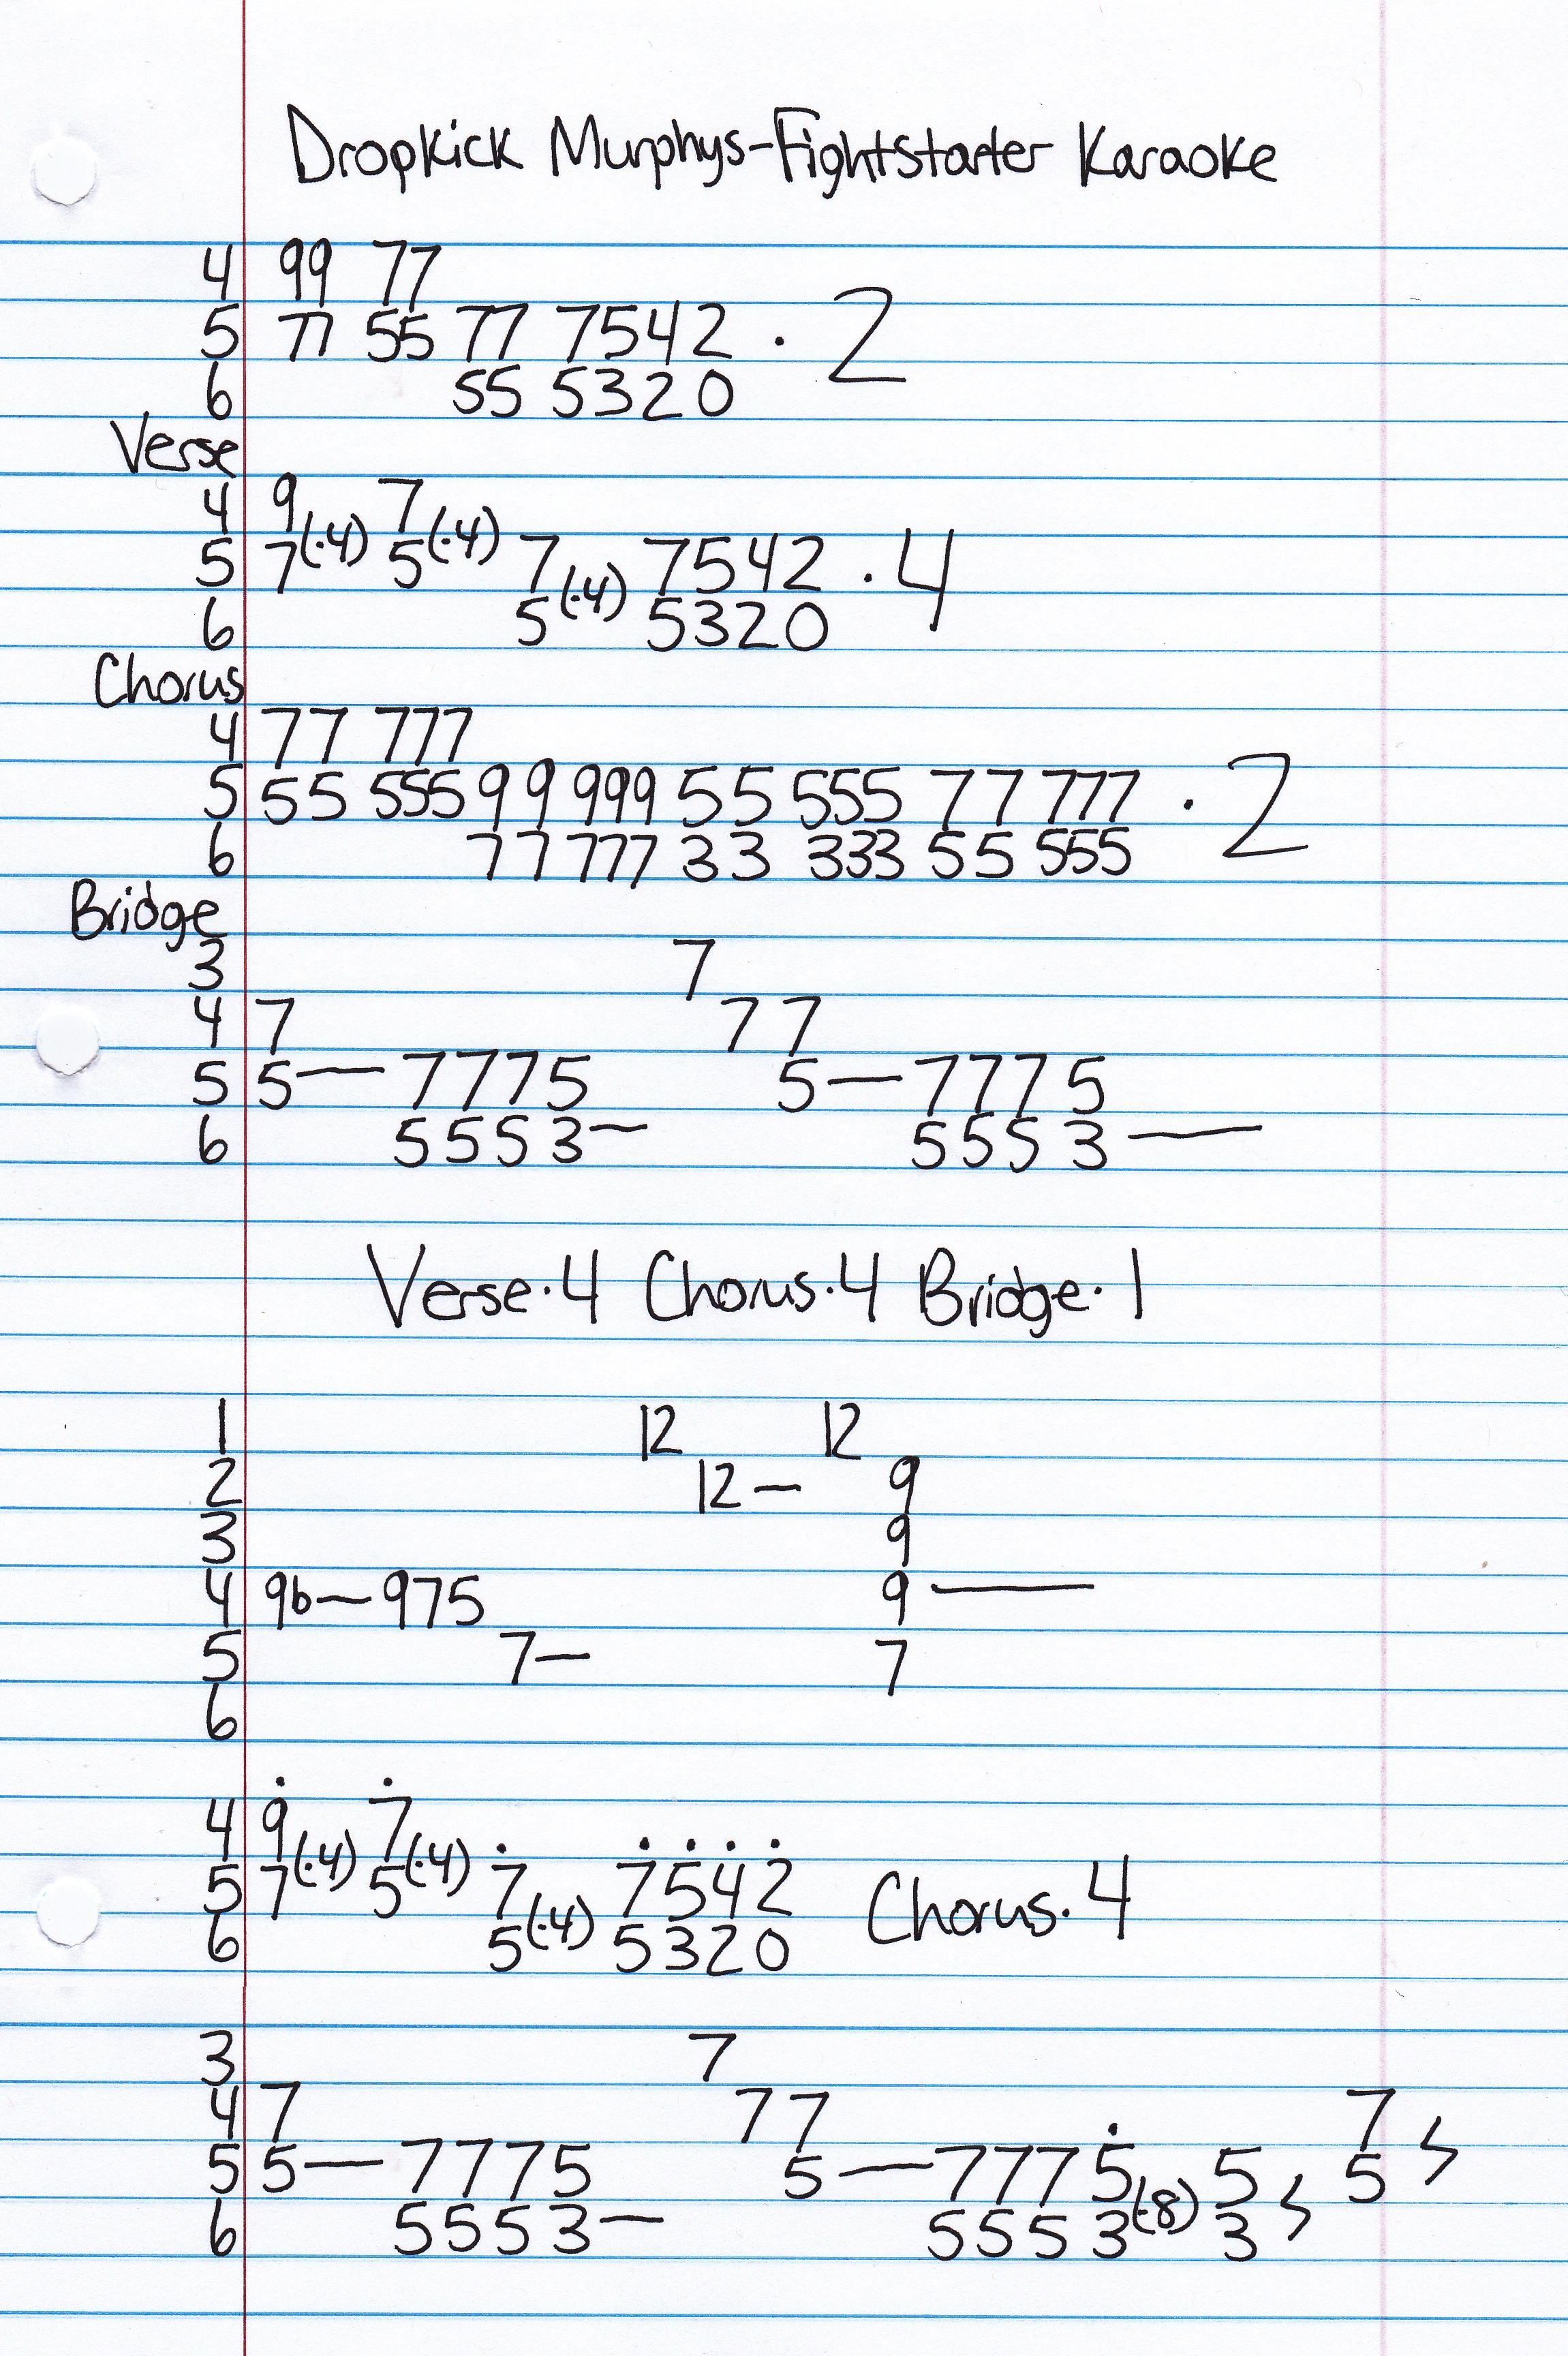 Dropkick Murphys-Fightstarter Karaoke
4 99 77
5 77 55 77 7542 · 2
6 55 5320
Verse
4 9(·4) 7(·4)
5 7 5 7(·4) 7542 · 4
6 5 5320
Chorus
4 77 777
5 55 555 99 999 55 555 77 777 · 2
6 77 777 33 333 55 555
Bridge
3 7
4 7 77
5 5— 7775 5—7775
6 5553— 5553—
Verse·4 Chorus·4 Bridge·1
1 12 12
2 12— 9
3 9
4 9b—975 9—
5 7— 7
6
4 9(·4) 7(·4)
5 7 5 7(·4) 7542 Chorus·4
6 5 5320
3 7
4 7 77 7
5 5—7775 5—7775(·8) 5 5
6 5553— 5553 3